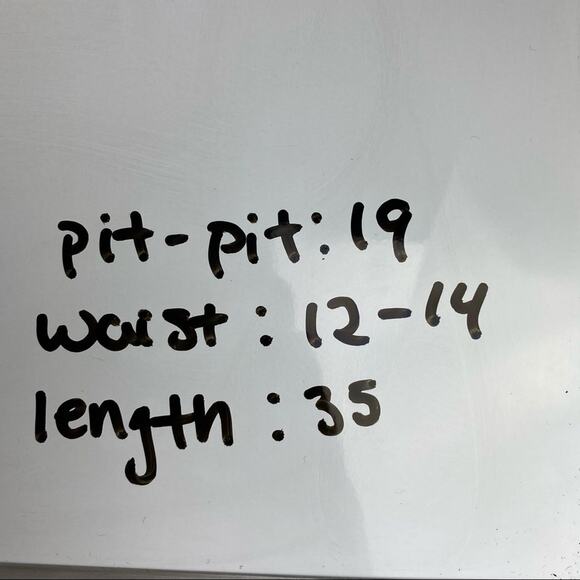 pit-pit: 19
waist: 12-14
length: 35